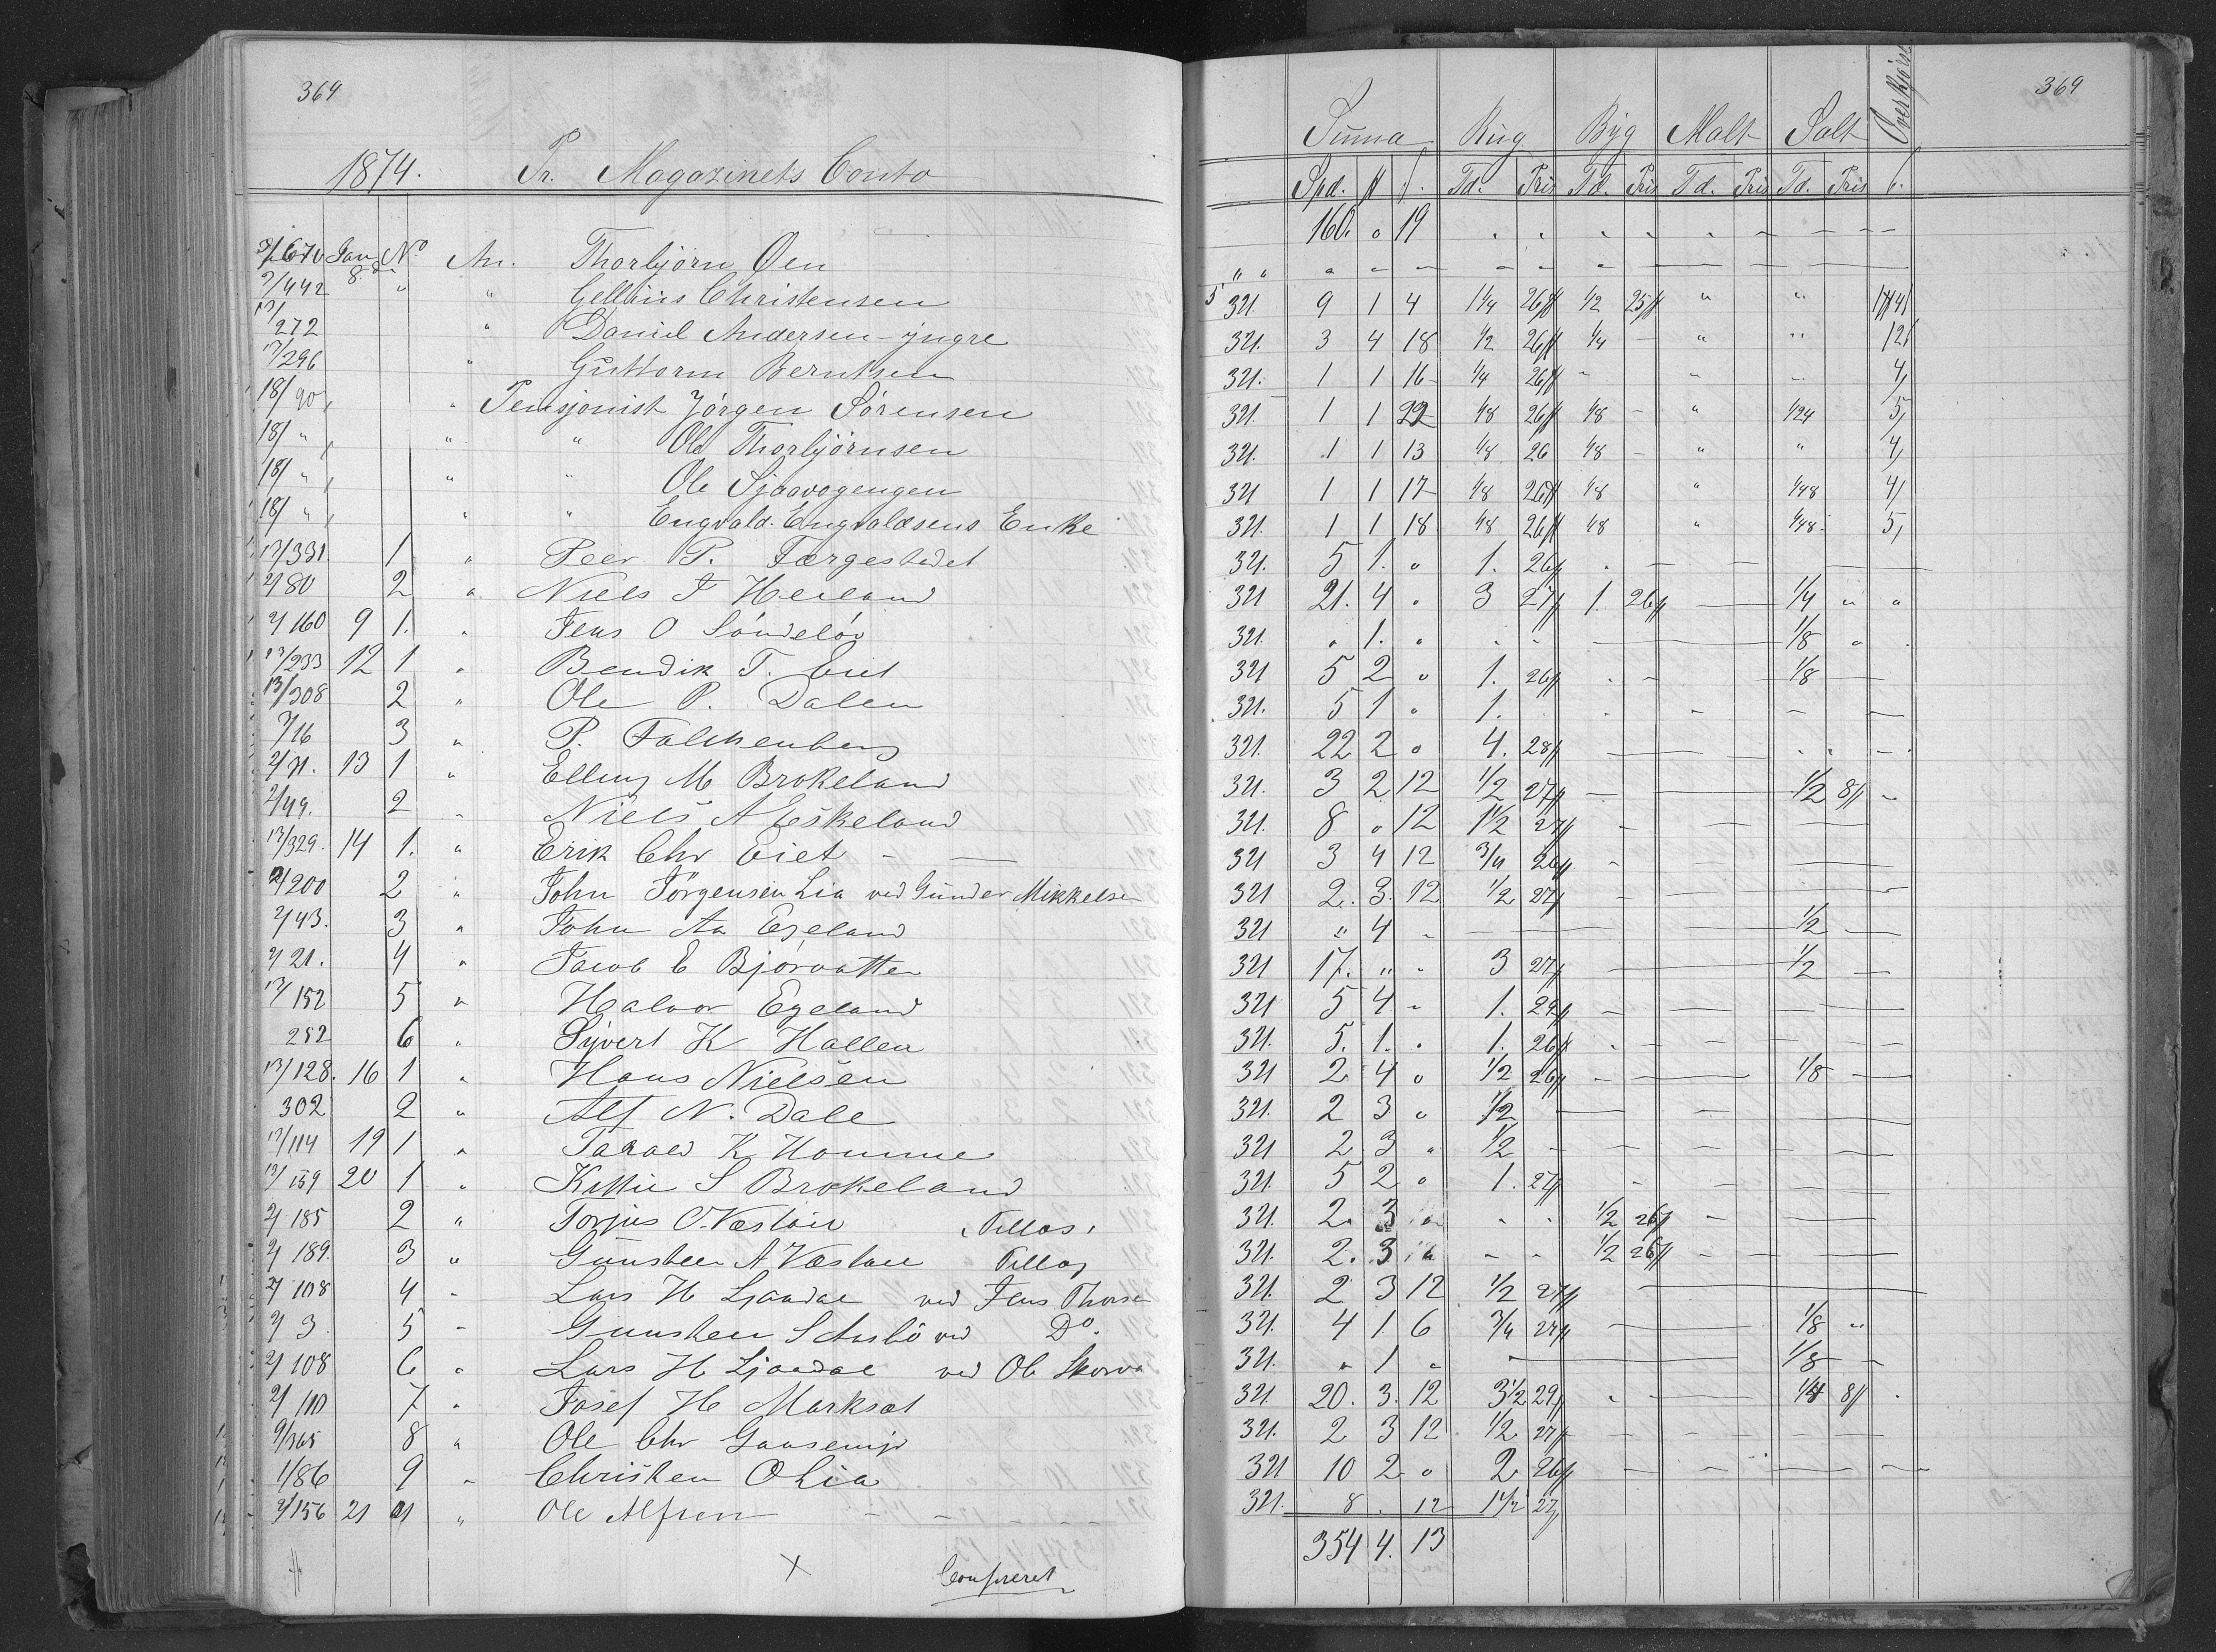 369
1874. Pr. Magazinets Conto
Jan No An. Thorbjørn Øen
9/442 8. " " Gellius Christensen
272 " Daniel Andersen - yngre
13/296 " Guttorm Berntsen
18/90 " Pensjonist Jörgen Sörensen
18/ " " " Ole Thorbjörnsen
18/ " " " Ole
18/ " " " Engvald Engvaldsens Enke
13/331 1 " Peer P. Færgestedet
2/80 2 " Niels J Heiland
2/160 9 1. " Jens O Söndeløv
13/233 12 1 " Bendik T. Eiet
13/308 2 " Ole P. Dalen
7/16 3 " P. Falchenberg
2/71. 13 1 " Elling M Brokeland
2/49. 2 " Niels A Eskeland
13/329. 14 1. " Erik Chr Eiet -
2/200 2 " John Jörgensen Lia ved Gunder Mikkelsen
2/43. 3 " John Aa Egeland
2/21. 4 " Jacob E Bjorvatten
13/152 5 " Halvor Egeland
252 6 " Syvert K Hallen
13/128. 16 1 " Hans Nielsen
302 2 " Alf N. Dale
13/114 19 1 " Tarald K Homme
13/159 20 1 " Kittil S Brokeland
2/185 2 " Torjus O Væstöil Tellas
2/189. 3 " Gunsten A Væstöl Tellas
2/108 4 " Lars H Ljaadal ved Jens Thors
2/3 5 " Gunsten S ved Do.
2/108 6 " Lars H Ljaadal ved Ole
2/110 7 " Josef H Marksæt
9/365 8 " Ole Chr
1/86 9 " Christen O Lia
2/156 21 1 " Ole Alfsen
X Confereret
369
Summa Rug Byg Malt Salt Overkjørsel
Spd. Td. Pris Td. Pris Td. Pris Td. Pris
160. " 19
321. 9 1 4 1 1/4 26 1/2 25
321. 3 4 18 1/2 26 1/4 - " " 12
321. 1 1 16 1/4 26 " " " 4
321. 1 1 22 1/8 26 1/8 - " 1/24 5
321. 1 1 13 1/8 26 1/8 - " " 4
321 1 1 17 1/8 26 1/8 " 1/48 4
321. 1 1 18 1/8 26 1/8 " 1/48 5
321. 5 1. " 1. 26
321 21. 4 " 3 27 1. 26 1/4 " "
321. " 1. " 1/8 "
321 5 2 " 1. 26 1/8
321. 5 1 " 1.
321. 22 2 " 4. 28
321. 3 2 12 1/2 27 1/2 8
321. 8 " 12 1 1/2 27
321 3 4 12 3/4 26
321 2. 3. 12 1/2 27
321 " 4 - 1/2
321 17. " " 3 27 1/2
321 5 4 - 1. 29
321. 5. 1. " 1. 26
321 2 4 " 1/2 26 1/8
321. 2 3 " 1/2
321 2 3 " 1/2
321. 5 2 " 1. 27
321. 2. 3 " 1/2 26
321. 2. 3 " 1/2 26
321. 2 3 12 1/2 27
321. 4 1 6 3/4 27 1/8 "
321. " 1 " 1/8
321 20. 3. 12 3 1/2 29 1/4 8
321. 2 3 12 1/2 27
321 10 2 " 2 26
321. 8 . 12 1 1/2 27
354 4. 13